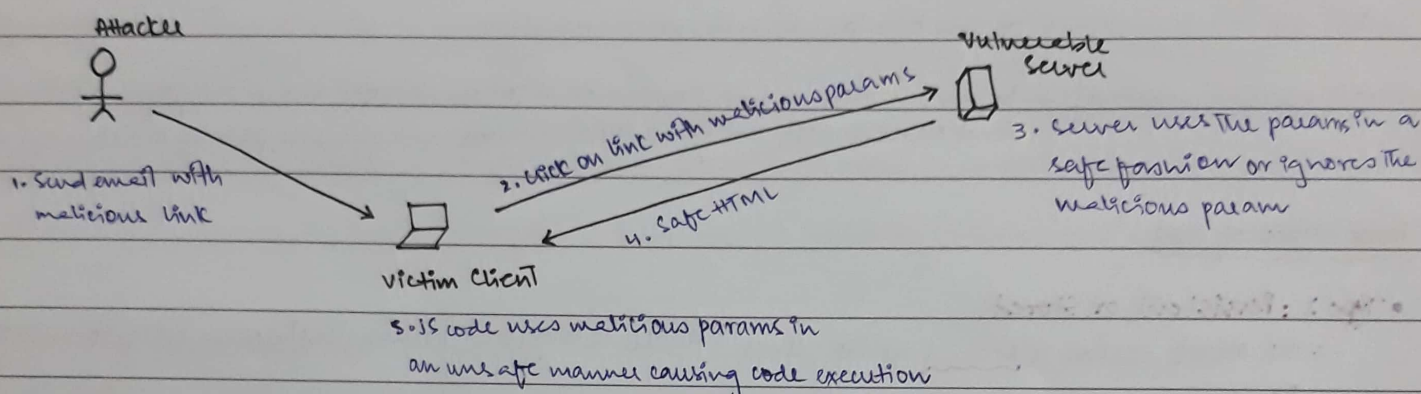 Attacker
Vulnerable
Server
1. Send email with
malicious link
2. click on link with malicious params
3. server uses the params in a
safe fashion or ignores the
malicious param
4. safe HTML
Victim Client
5. JS code uses malicious params in
an unsafe manner causing code execution